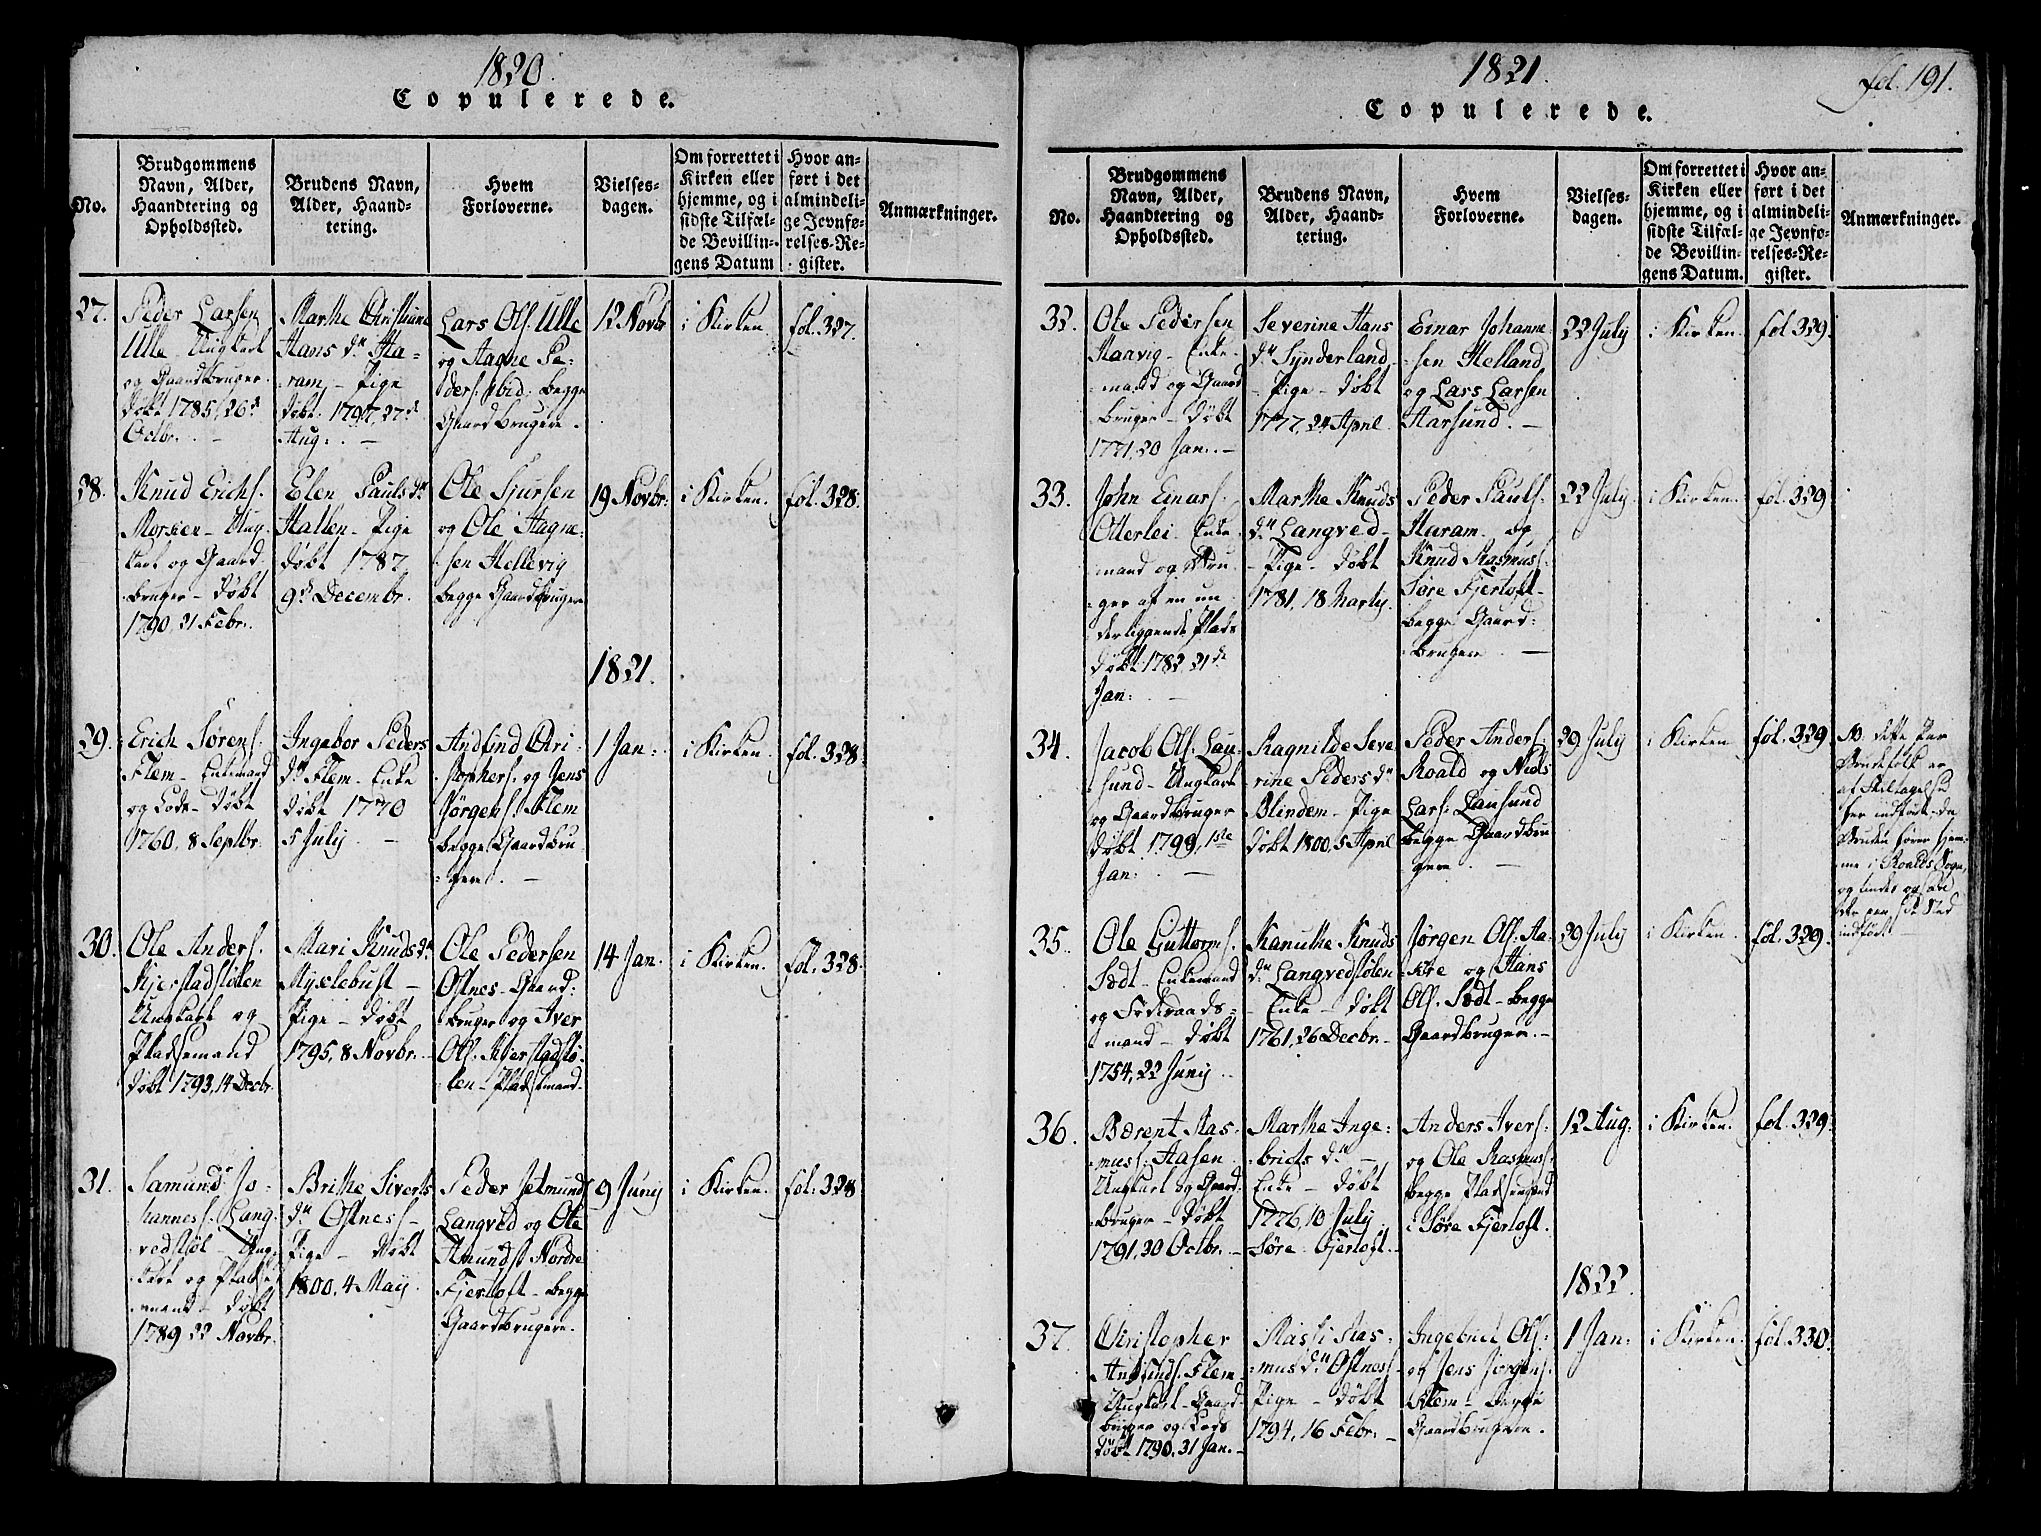 1820.
Copulerede.
No.
Brudgommens
Navn, Alder,
Haandtering og
Opholdssted.
Brudens Navn,
Alder, Haand-
tering.
Hvem
Forloverne.
Vielses-
dagen.
Om forrettet i
Kirken eller
hjemme, og i
sidste Tilfæl-
de Bevillin-
gens Datum
Hvor an-
ført i det
almindeli-
ge Jevnfø-
relses-Re-
gister.
Anmærkninger.
27.
Peder Larsen
Ulle Ungkarl
og Gaardbruger.
Døbt 1785, 26d
Octbr.
Marthe Christiane
Hans Dr Ha-
ram, - Pige
Døbt. 1797, 27d
Aug:
Lars Ols. Ulle
og Hagne Pe-
ders. ibid. begge
Gaardbrugere.
12 Novbr
i Kirken.
fol. 327.
28.
Knud Erichs.
Morsæn - Ung
karl og Gaard
bruger - Døbt
1790, 21 Febr.
Elen Pauls Dr
Hallen - Pige
Døbt 1787
9d Decembr.
Ole Sjursen
og Ole Hagne-
sen Hellevig
begge Gaardbrugere
19 Novbr.
i Kirken.
fol. 328.
1821.
29.
Erich Sørens.
Flem - Enkemand
og Lods - Døbt
1760, 8 Septbr.
Ingebor Peders
Dr Flem - Enke
Døbt 1770
5 July
Andfind Chri-
stophers. og Jens
Jørgens. Flem
begge Gaardbru
gere.
1 Jan:
i Kirken.
fol. 328.
30.
Ole Anders.
Kjerstadstølen
Ungkarl og
Pladsemand
Døbt 1793, 14 Decbr.
Mari Knuds Dr
Myclebust -
Pige - Døbt
1795, 8 Novbr.
Ole Pedersen
Ostnes - Gaard-
bruger og Iver
Ols. Kjerstadstø-
len - Pladsemand.
14 Jan.
i Kirken.
fol. 328.
31.
Samund Jo-
hanness. Lang-
vedstøl - Ung-
karl og Pladse
mand - Døbt
1789 22 Novbr.
Brithe Siverts
Dr Ostness -
Pige - Døbt
1800, 4 Maij
Peder Jetmunds
Langved og Ole
Amunds. Nordre
Fjertoft - begge
Gaardbrugere.
9 Junij
i Kirken.
fol. 328
1821.
Copulerede.
fol. 191.
No.
Brudgommens
Navn, Alder,
Haandtering og
Opholdssted.
Brudens Navn,
Alder, Haand-
tering.
Hvem
Forloverne.
Vielses-
dagen.
Om forrettet i
Kirken eller
hjemme, og i
sidste Tilfæl-
de Bevillin-
gens Datum.
Hvor an-
ført i det
almindeli-
ge Jevnfø-
relses-Re-
gister.
Anmærkninger.
32.
Ole Pedersen
Haavig - Enke-
mand og Gaard
bruger - Døbt
1771, 20 Jan.
Severine Hans
Dr Synderland
- Pige - Døbt
1777, 24 April
Einar Johanne-
sen Helland
og Lars Larsen
Aarsund.
22 July
i Kirken.
fol. 329.
33.
John Einars.
Otterlei Enke
mand og Bru
ger af en un
derliggende Plads
Døbt 1782 21de
Jan:
Marthe Knuds
Dr Langved -
- Pige - Døbt
1781, 18 Martij.
Peder Pauls.
Haram og
Knud Rasmuss.
Søre Fjertoft -
begge Gaard-
brugere
22 July.
i Kirken.
fol. 329
34.
Jacob Ols. Lau-
sund - Ungkarl
og Gaardbruger
Døbt 1799, 1ste
Jan:
Ragnilde Seve
rine Peders Dr
Blindem - Pige
Døbt 1800, 5 April
Peder Anders.
Roald og Niels
Lars. Lausund
begge Gaardbru
gere
29 July
i Kirken
fol. 329
NB. dette Par
Brudefolk er
af
her indført, da
Bruden hører hjem-
me i Roalds Sogn,
og findes ogsaa
paa sit Sted
indført
35.
Ole Guttorms.
Sædt - Enkemand
og Føderaads-
mand - Døbt
1754, 22 Junij
Kanuthe Knuds
Dr Langvedstølen
- Enke - Døbt
1761, 26 Decbr.
Jørgen Ols. Aa-
kre og Hans
Ols. Sædt - begge
Gaardbrugere.
29 July
i Kirken.
fol. 329.
36.
Bærent Ras-
muss. Aasen
Ungkarl og Gaard-
bruger - Døbt
1791, 30 Octbr.
Marthe Inge-
brigts Dr -
Enke - Døbt
1776, 10 July
Søre Fjertoft.
Anders Ivers.
og Ole Rasmuss.
begge Pladsemænd
i Søre Fjertoft.
12 Aug:
i Kirken.
fol. 329.
1822.
37.
Christopher
Andfinds. Flem
Ungkarl - Gaard-
bruger og Lods
Døbt 1790, 31 Jan.
Massi Ras-
mus Dr Ostness
Pige - Døbt
1794, 16 Febr.
Ingebrigt Ols.
og Jens Jørgens.
Flem - begge
Gaardbrugere.
1 Jan:
i Kirken.
fol. 330.